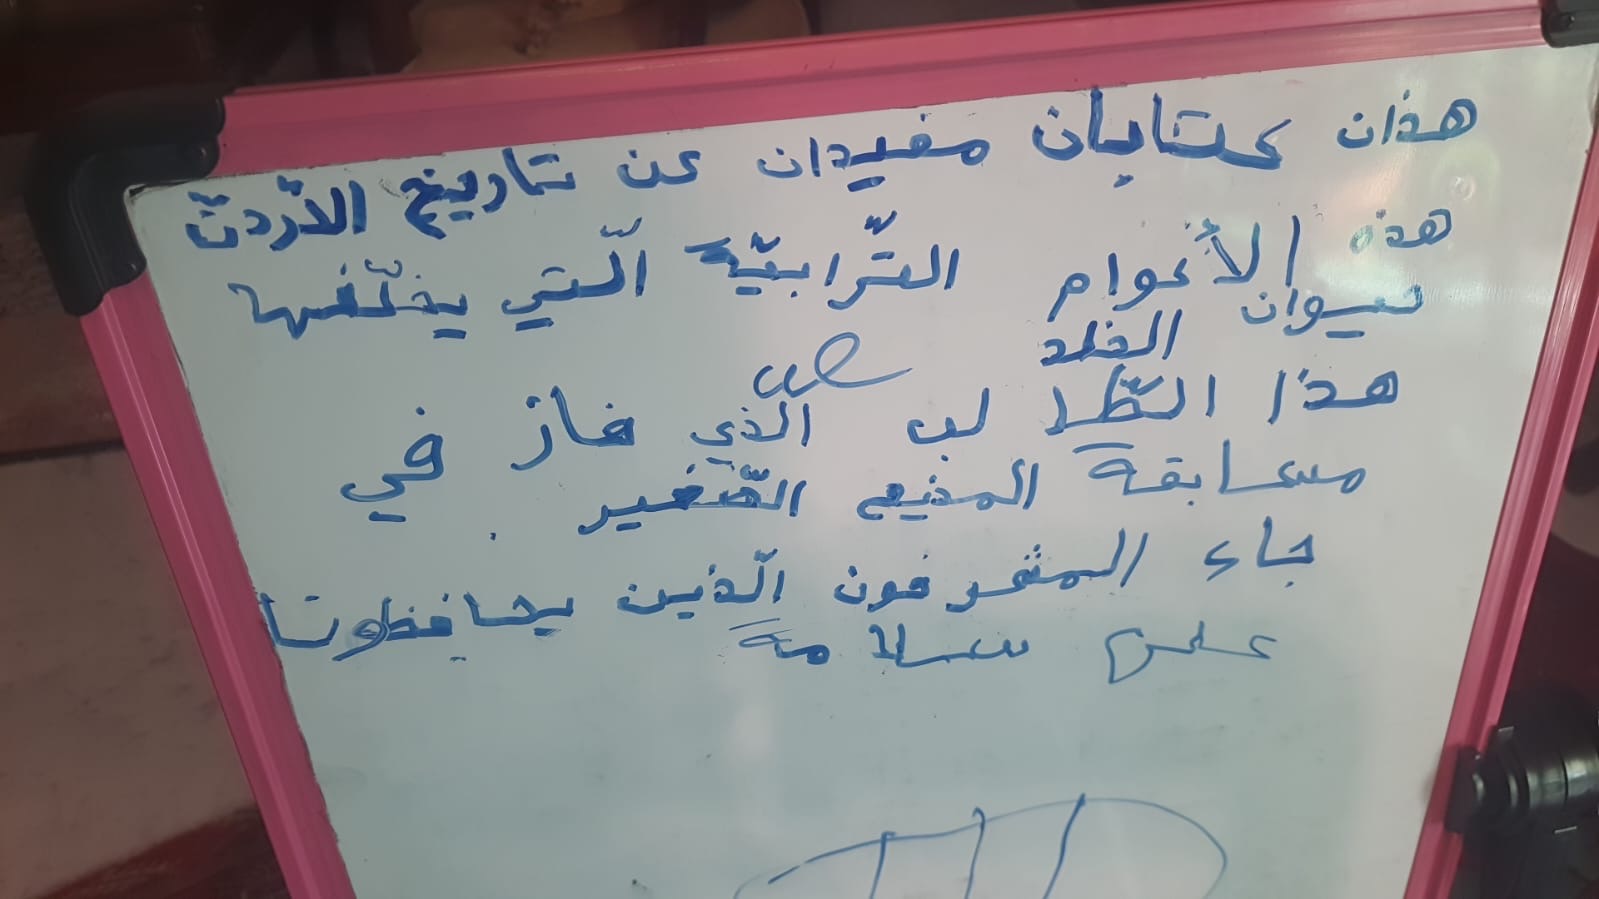 هذان كتابان مفيدان عن تاريخ الأردنّ
هذه الأعوام التّرابيّة الّتي يخلّفها
حيوان الخلد
هذا الطّالب الّذي فاز في
مسابقة المذيع الصّغير .
جاء المشرفون الّذين يحافظون
على سلامة